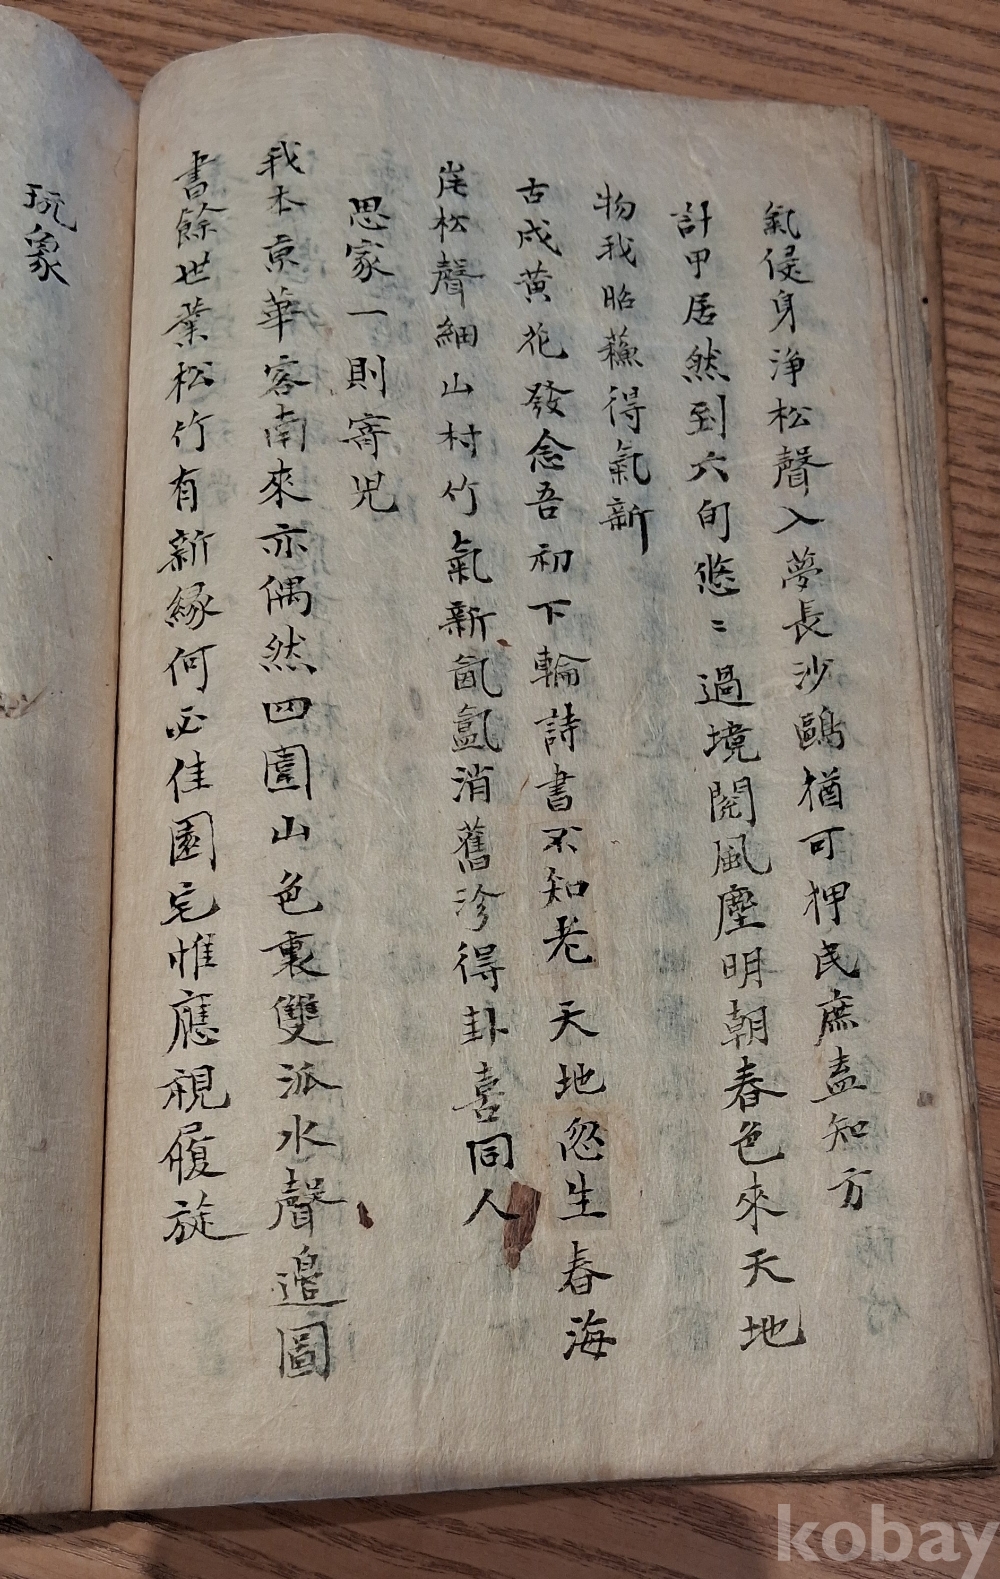 氣侵身淨松聲入夢長沙鷗猶可狎民庶盍知方
計甲居然到六旬悠〻過境閱風塵明朝春色來天地
物我昭蘓得氣新
古戍黃花發念吾初下輪詩書不知老天地忽生春海
崖松聲細山村竹氣新氤氳消舊沴得卦喜同人
思家一則寄児
我本京華客南來亦偶然四圍山色裏雙派水聲邉圖
書餘世業松竹有新緣何必佳園宅惟應視履旋
玩象
kobay